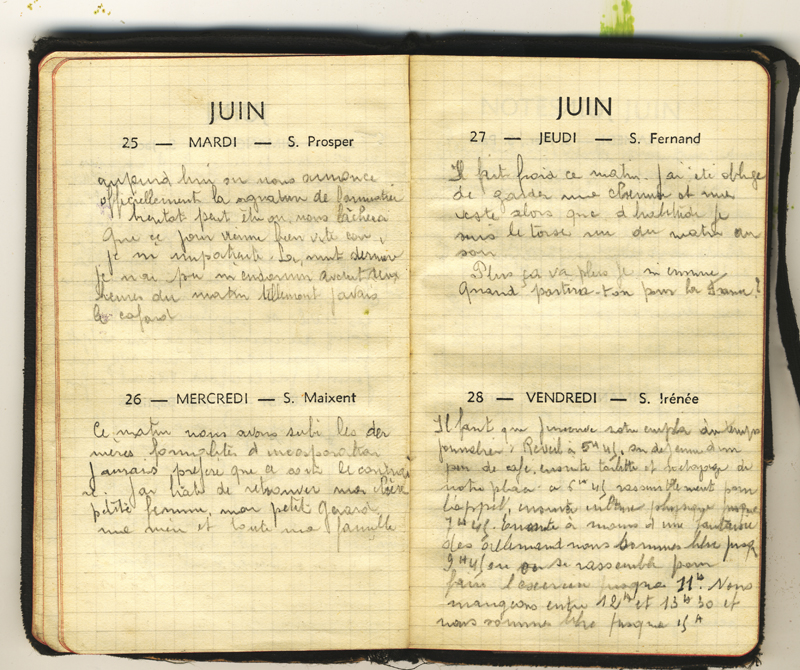 JUIN
25 — MARDI — S. Prosper
aujourd hui on nous annonce
officiellement la signation de l'armistice
bientot peut être on nous lâchera
Que ce jour vienne bien vite car,
je m impatiente. La nuit derniere
je n ai pu m endormir avant deux
heures du matin tellement j'avais
le cafard
26 — MERCREDI — S. Maixent
Ce matin nous avons subi les der
nières formalités d incorporation
J aurais préféré que ce soit le contrai
re. J'ai hâte de retrouver ma chère
petite femme, mon petit Gérard,
ma mère et toute ma famille
JUIN
27 — JEUDI — S. Fernand
Il fait frais ce matin. J'ai été obligé
de garder ma chemise et ma
veste alors que d habitude je
suis le torse nu du matin au
soir
Plus ça va plus je m ennuie,
Quand partira-t-on pour la France?
28 — VENDREDI — S. Irénée
Il faut que je note notre emploi du temps
journalier: Réveil à 5H45, on dejeune d'un
peu de café, ensuite toilette et
notre place à 6H45 rassemblement pour
l'appel, ensuite culture physique jusque
7H45. Ensuite à moins d une
des Allemand nous sommes libre jusq
9H45 où on se rassemble pour
faire l'exercice jusque 11H. Nous
mangeons entre 12H et 13H30 et
nous sommes libre jusque 15H